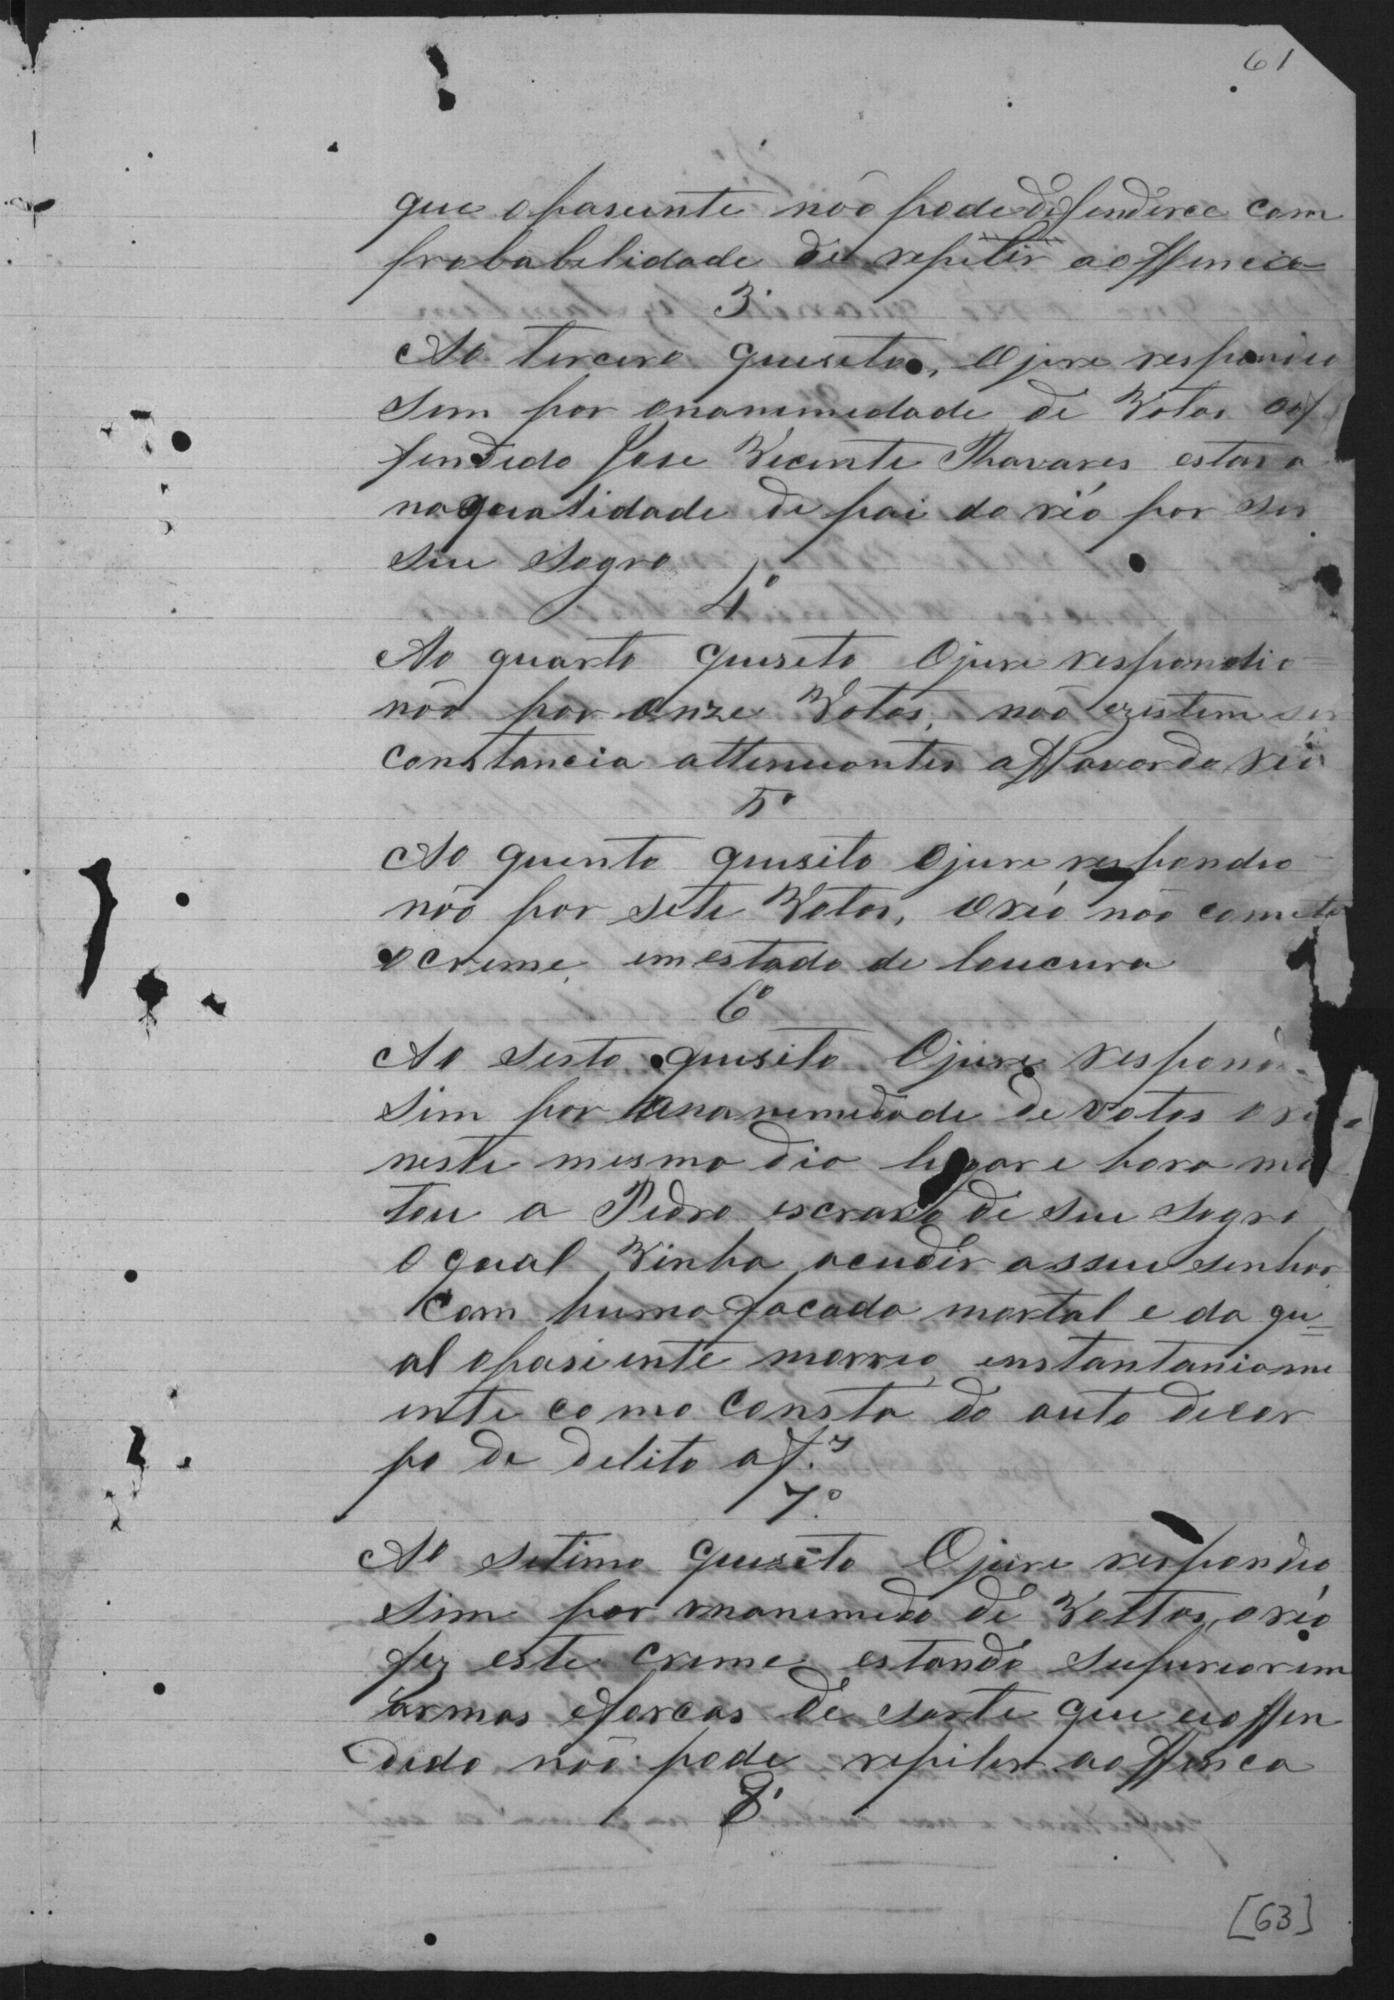 61
que opasiente não pode difenderce com
probabelidade de repilir aoffencia
3º
Ao tercero quesito, Ojure respondeo
sem por onanimidade de Votos oof
fendido Jose Vicente Thavares estava
naqualidade de pai do réo por ser
seu sogro
4º
Ao quarto quesito Ojure respondio
não por onze Votos, não ezistem sir
constancia attenuontes affavordo réo
5º
Ao quento quesito Ojure respondeo
não por sete Votos, oréo não cometeo
ocreme emestado de loucura
6º
Ao sesto quesito Ojure respond
sim por unanemidade de votos oréo
neste mesmo dia lugar e hora ma
tou a Pedro escravo de seu sogro
Oqual Vinha acudir asseu senhor
com huma facada mortal e da qu=
al opasiente morreo enstantaniame
ente como consta do auto decor
po de delito af.
7º
Ao setimo quesito Ojure respondeo
sim por unanemida de Vottos, oréo
fez este crime estando superiorem
armas eforcas de sorte que ooffen
dedo não pode repiler aoffenca
8º
[63]